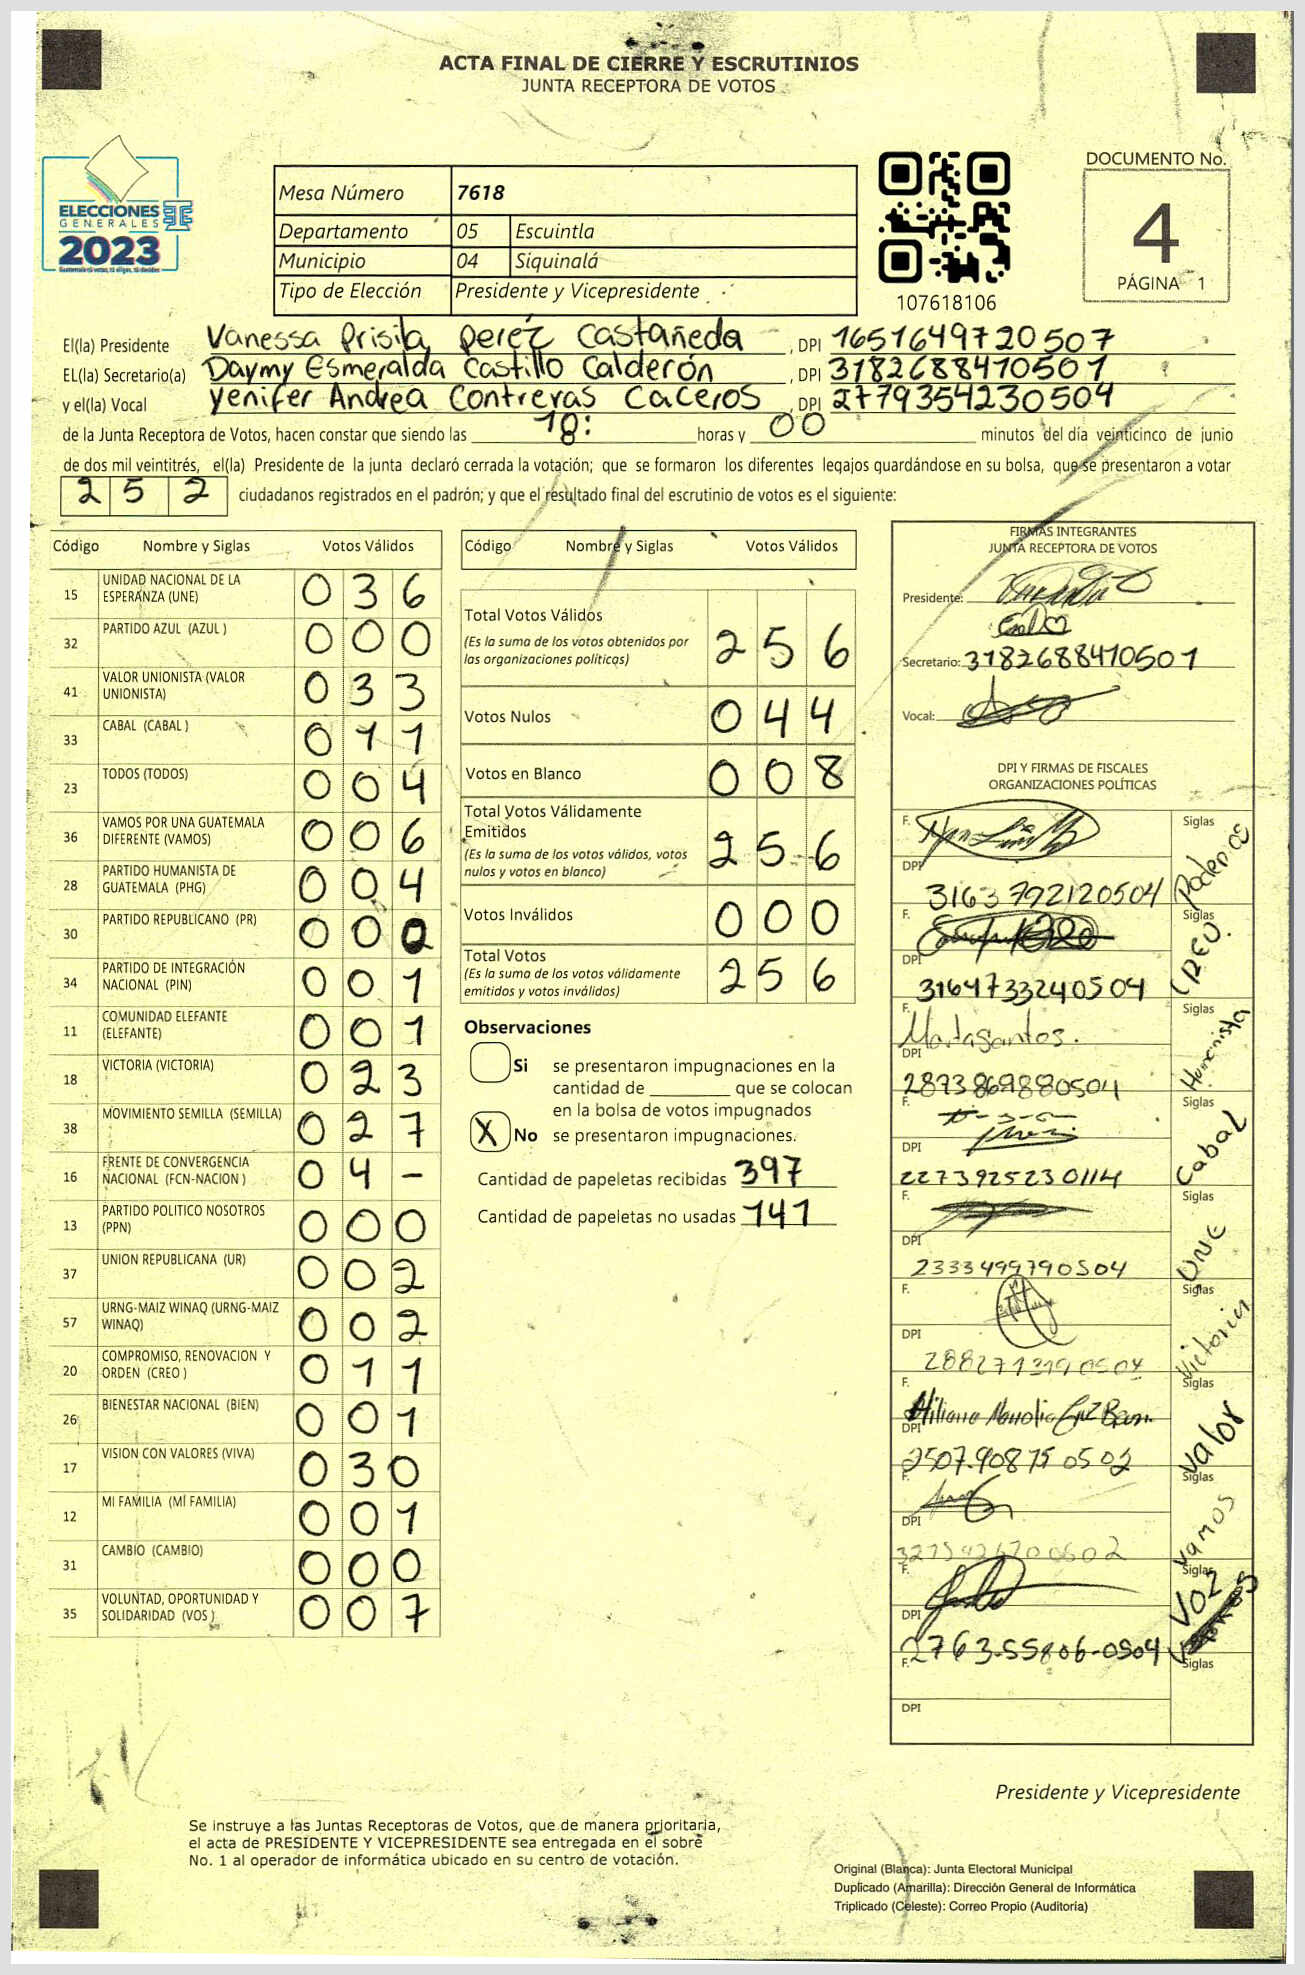 ACTA FINAL DE CIERRE Y ESCRUTINIOS
JUNTA RECEPTORA DE VOTOS
ELECCIONES
GENERALES
2023
Mesa Número 7618
Departamento 05 Escuintla
Municipio 04 Siquinalá
Tipo de Elección Presidente y Vicepresidente
107618106
DOCUMENTO No.
4
PÁGINA 1
El(la) Presidente Vanessa Prisila perez Castañeda , DPI 1651649720507
EL(la) Secretario(a) Daymy Esmeralda Castillo Calderón , DPI 3182688410501
y el(la) Vocal Yenifer Andrea Contreras Caceros , DPI 2779354230504
de la Junta Receptora de Votos, hacen constar que siendo las 18: horas y 00 minutos del día veinticinco de junio
de dos mil veintitrés, el(la) Presidente de la junta declaró cerrada la votación; que se formaron los diferentes legajos guardándose en su bolsa, que se presentaron a votar
252 ciudadanos registrados en el padrón; y que el resultado final del escrutinio de votos es el siguiente:
Código Nombre y Siglas Votos Válidos
15 UNIDAD NACIONAL DE LA ESPERANZA (UNE) 036
32 PARTIDO AZUL (AZUL ) 000
41 VALOR UNIONISTA (VALOR UNIONISTA) 033
33 CABAL (CABAL ) 011
23 TODOS (TODOS) 004
36 VAMOS POR UNA GUATEMALA DIFERENTE (VAMOS) 006
28 PARTIDO HUMANISTA DE GUATEMALA (PHG) 004
30 PARTIDO REPUBLICANO (PR) 000
34 PARTIDO DE INTEGRACIÓN NACIONAL (PIN) 001
11 COMUNIDAD ELEFANTE (ELEFANTE) 001
18 VICTORIA (VICTORIA) 023
38 MOVIMIENTO SEMILLA (SEMILLA) 027
16 FRENTE DE CONVERGENCIA NACIONAL (FCN-NACION ) 04-
13 PARTIDO POLITICO NOSOTROS (PPN) 000
37 UNION REPUBLICANA (UR) 002
57 URNG-MAIZ WINAQ (URNG-MAIZ WINAQ) 002
20 COMPROMISO, RENOVACION Y ORDEN (CREO ) 011
26 BIENESTAR NACIONAL (BIEN) 001
17 VISION CON VALORES (VIVA) 030
12 MI FAMILIA (MI FAMILIA) 001
31 CAMBIO (CAMBIO) 000
35 VOLUNTAD, OPORTUNIDAD Y SOLIDARIDAD (VOS ) 007
Código Nombre y Siglas Votos Válidos
Total Votos Válidos 256
(Es la suma de los votos obtenidos por las organizaciones políticas)
Votos Nulos 044
Votos en Blanco 008
Total Votos Válidamente Emitidos 256
(Es la suma de los votos válidos, votos nulos y votos en blanco)
Votos Inválidos 000
Total Votos 256
(Es la suma de los votos válidamente emitidos y votos inválidos)
Observaciones
Si se presentaron impugnaciones en la
cantidad de ________ que se colocan
en la bolsa de votos impugnados
X No se presentaron impugnaciones.
Cantidad de papeletas recibidas 397
Cantidad de papeletas no usadas 141
FIRMAS INTEGRANTES
JUNTA RECEPTORA DE VOTOS
Presidente:
Secretario: 3182688410501
Vocal:
DPI Y FIRMAS DE FISCALES
ORGANIZACIONES POLÍTICAS
F. Siglas Poder
DPI 3163792120504
F. Siglas CREO
DPI 3164733240504
F. Siglas Humanista
DPI 2873869880504
F. Siglas Cabal
DPI 2273925230114
F. Siglas UNE
DPI 2333499790504
F. Siglas Victoria
DPI
F. Siglas Valor
DPI
F. Siglas Vamos
DPI
F. Siglas VOZ
DPI 2763-55806-0504
F. Siglas
DPI
Presidente y Vicepresidente
Se instruye a las Juntas Receptoras de Votos, que de manera prioritaria,
el acta de PRESIDENTE Y VICEPRESIDENTE sea entregada en el sobre
No. 1 al operador de informática ubicado en su centro de votación.
Original (Blanca): Junta Electoral Municipal
Duplicado (Amarilla): Dirección General de Informática
Triplicado (Celeste): Correo Propio (Auditoria)